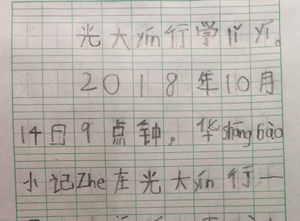 光大yín行学lǐ yí。
2018年10月
14日9点钟，华shāngbào
小记Zhe在光大yín行一